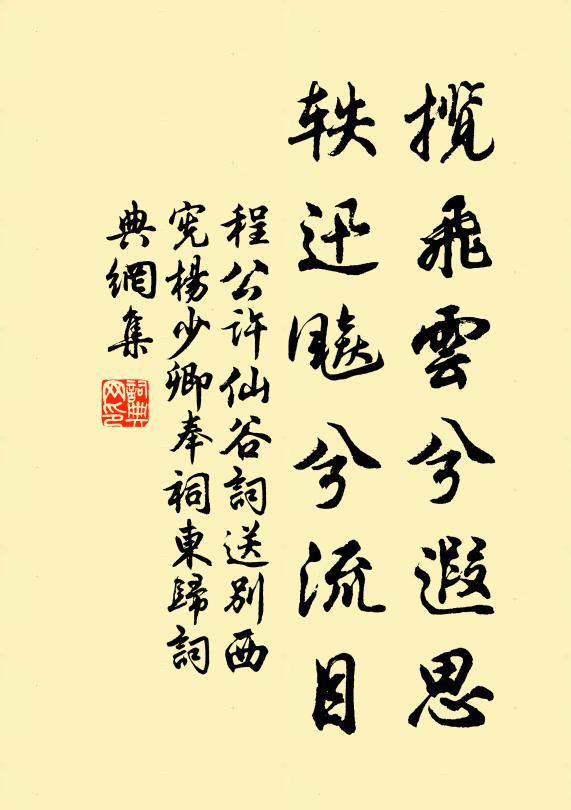 攬飛雲兮遐思
軼迅飈兮流目
程公許仙谷詞送別西
宪楊少卿奉祠東歸詞
典網集
詞典
网印